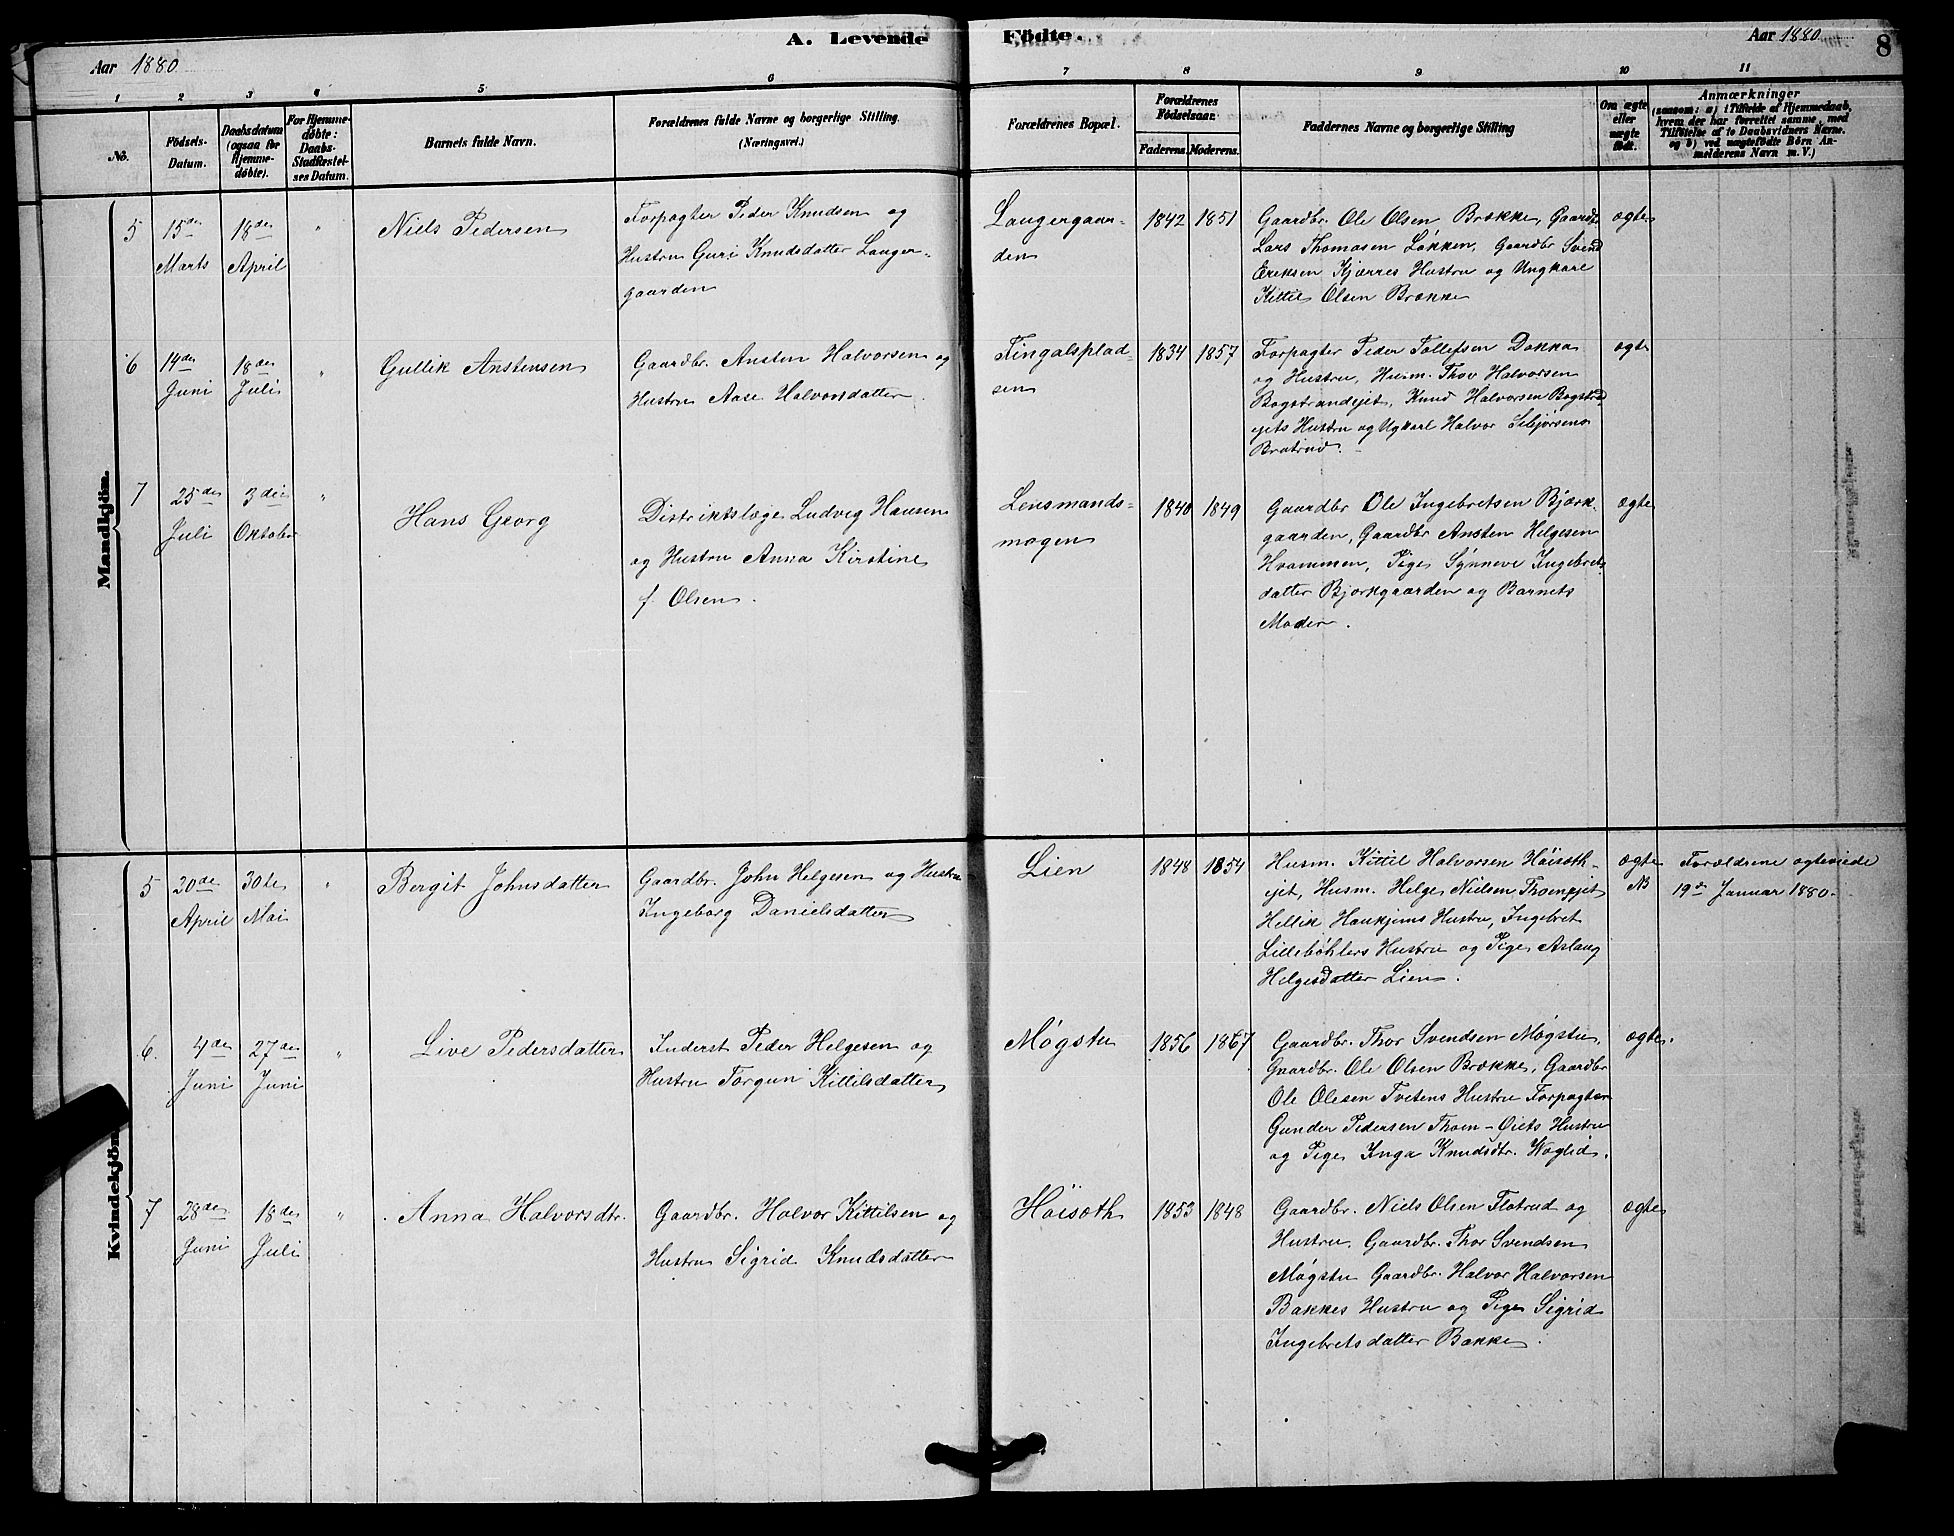 A. Levende Födte.
Aar 1880
Aar 1880
8
1 2 3 4 5 6 7 8 9 10 11
No.
Födsels-Datum.
Daabsdatum (ogsaa for Hjemmedøbte).
For Hjemmedøbte: Daabs-Stadfæstelses Datum.
Barnets fulde Navn.
Forældrenes fulde Navne og borgerlige Stilling. (Næringsvei.)
Forældrenes Bopæl.
Forældrenes Födselsaar.
Faderens. Moderens.
Faddernes Navne og borgerlige Stilling
Om ægte eller uægte født.
Anmærkninger
(saasom: a) i Tilfælde af Hjemmedaab,
hvem der har forrettet samme, med
Tilføielse af to Daabsvidners Navne.
og b) ved uægtefödte Börn An-
melderens Navn m. V.)
Mandkjön.
5
15de Marts
18de April
"
Niels Pedersen
Forpagter Peder Knudsen og
Hustru Guri Knudsdatter Langer-
gaarden
Langergaar-
den
1842 1851
Gaardbr. Ole Olsen Brække, Gaardb.
Lars Thomasen Løkken, Gaardbr Svend
Eriksen Kjærres Hustru og Ungkarl
Kittil Olsen Brække
ægte
6
14de Juni
18de Juli
"
Gullik Anstensen
Gaardbr. Ansten Halvorsen og
Hustru Aase Halvorsdatter
Fingalsplad-
sen
1834 1857
Forpagter Peder Tollefsen Dokka
og Hustru, Husm. Thov Halvorsen
Bogstrandejet, Knud Halvorsen Bogstrd
ejets Hustru og Ugkarl Halvor Sebjørsens
Bratrud.
ægte
7
25de Juli
3die Oktober
"
Hans Georg
Distriktslæge Ludvig Hansen
og Hustru Anna Kirstine
f. Olsen.
Lensmands-
mogen
1840 1849
Gaardbr Ole Ingebretsen Bjørk-
gaarden, Gaardbr Ansten Helgesen
Hvammen, Pige Synneve Ingebrets
datter Bjørkgaarden og Barnets
Moder.
ægte
Kvindekjön.
5
20de April
30te Mai
"
Bergit Johnsdatter
Gaardbr. John Helgesen og Hustru
Ingeborg Danielsdatter
Lien
1848 1854
Husm. Kittil Halvorsen Höisæth-
ejet, Husm. Helge Nielsen Thoensejet
Hellik Haukjems Hustru, Ingebret
Lillebøhlers Hustru og Pige Aslaug
Helgesdatter Lien.
ægte
NB
Forældrene ægteviede
19de Januar 1880.
6.
4de Juni
27de Juni
"
Live Pedersdatter
Inderst Peder Helgesen og
Hustru Torgun Kittilsdatter
Møgstu
1856 1867
Gaardbr. Thor Svendsen Møgstu,
Gaardbr. Ole Olsen Brække, Gaardbr
Ole Olesen Tvetens Hustru Forpagter
Gunder Pedersen Thoen-Eiets Hustru
og Pige Inga Knudsdtr. Woglid.
ægte.
7
28de Juni
18de Juli
"
Anna Halvorsdtr.
Gaardbr. Halvor Kittilsen og
Hustru Sigrid Knudsdatter
Höisæth
1853 1848
Gaardbr. Niels Olsen Flotrud og
Hustru. Gaardbr. Thor Svendsen
Møgstu Gaardbr. Halvor Halvorsen
Bakkes Hustru og Pige Sigrid
Ingebretsdatter Bakke.
ægte